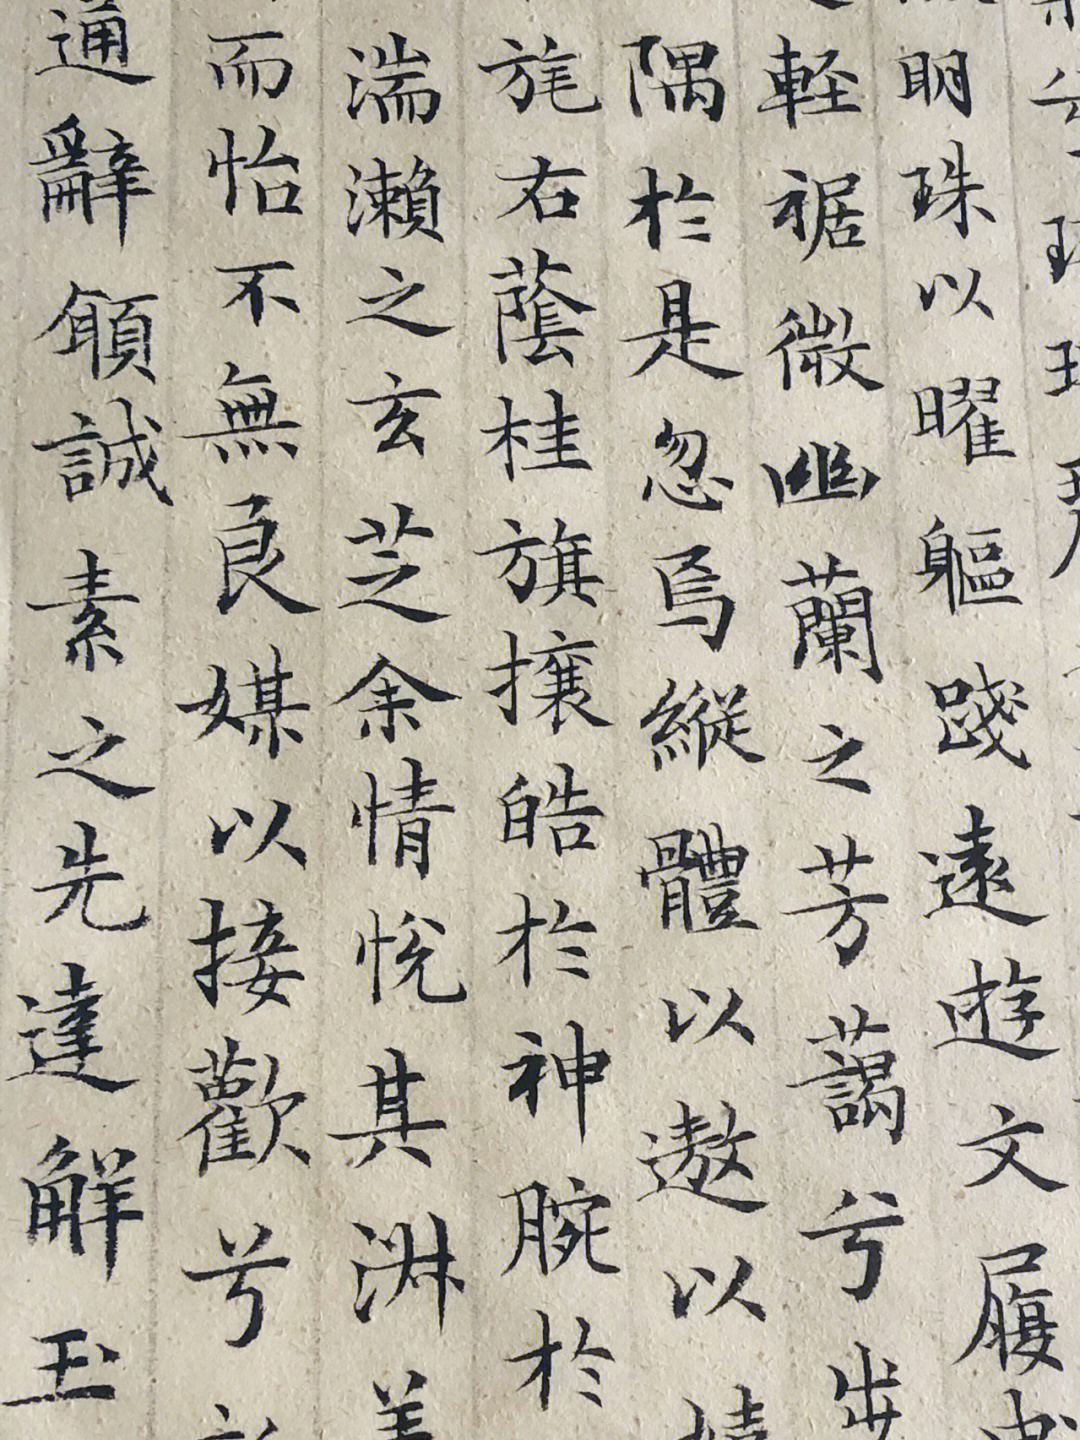 明珠以曜軀踐遠遊文履
軽裾微幽蘭之芳藹兮步
隅於是忽焉縱體以遨以
旄右蔭桂旗攘皓於神腕於
湍瀬之玄芝余情悅其淑美
而怡不無良媒以接歡兮
通辭願誠素之先達解玉